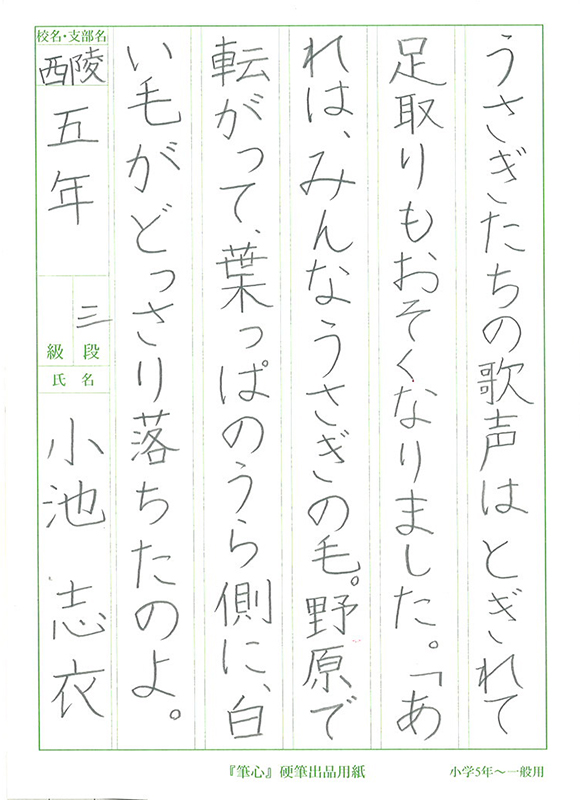 うさぎたちの歌声はとぎれて
足取りもおそくなりました。「あ
れは、みんなうさぎの毛。野原で
転がって、葉っぱのうら側に、白
い毛がどっさり落ちたのよ。
校名・支部名
西陵
五年
三
段
級
氏名
小池 志衣
『筆心』硬筆出品用紙
小学5年〜一般用